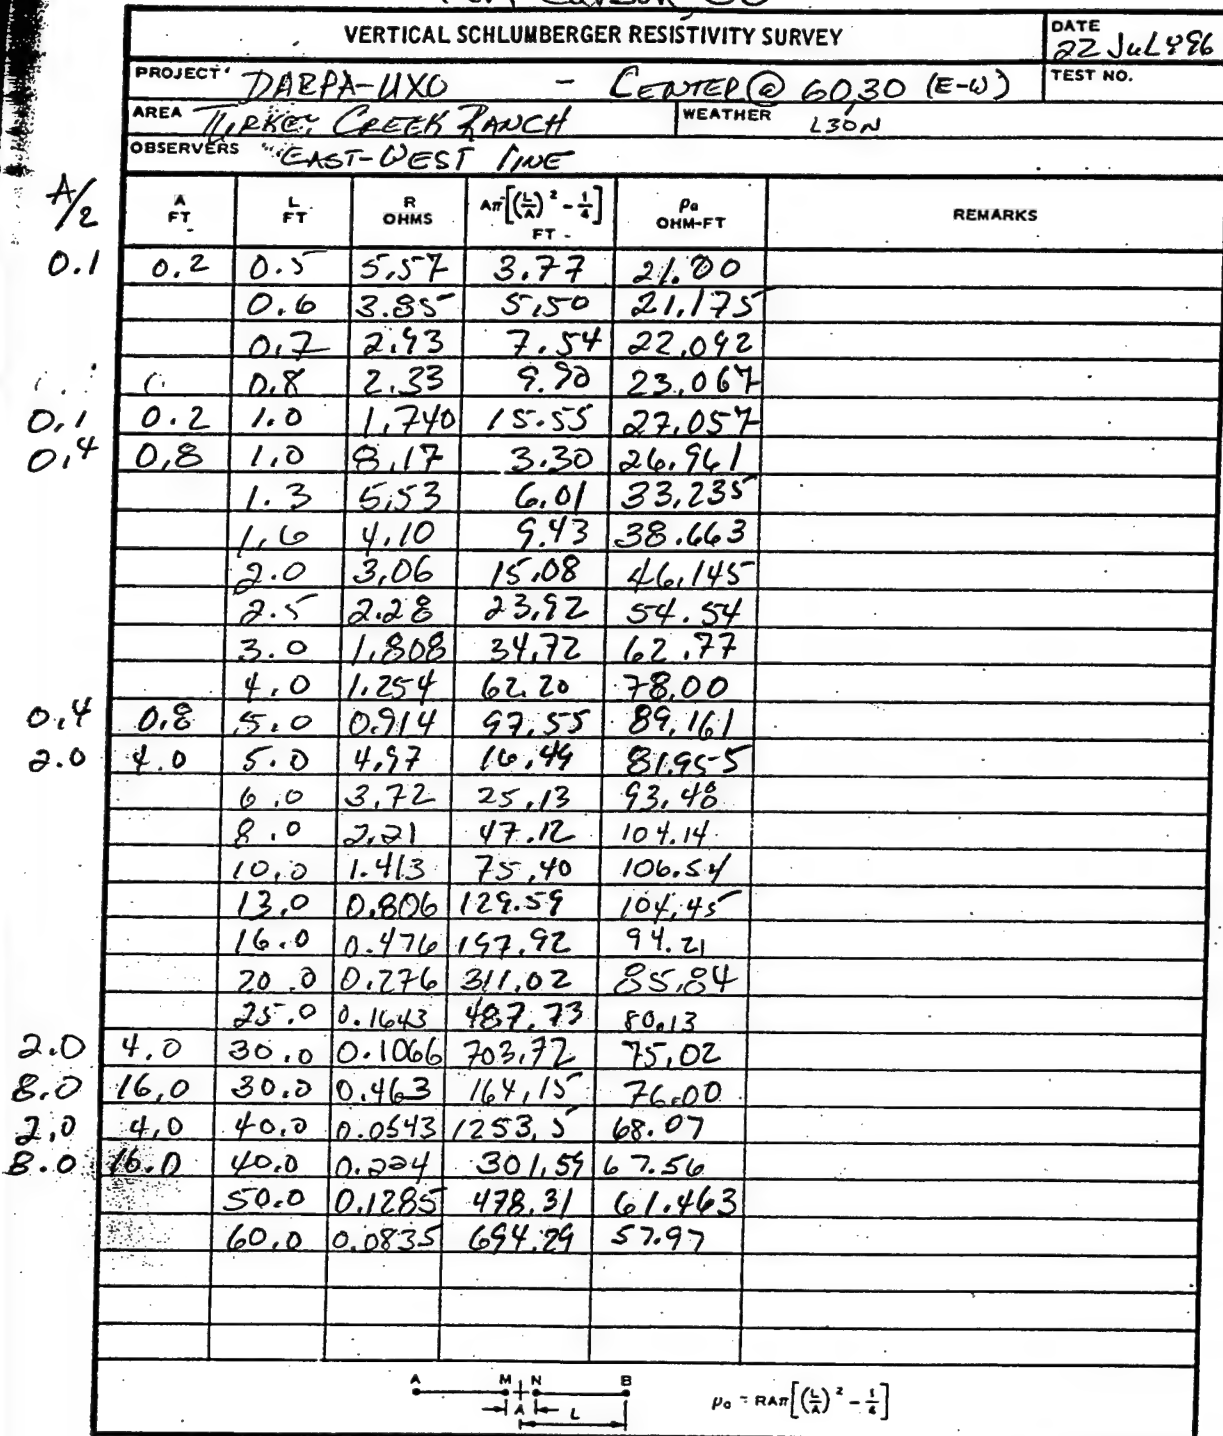 Fort Carson, CO
VERTICAL SCHLUMBERGER RESISTIVITY SURVEY DATE 22 JUL 96
PROJECT DARPA-UXO - CENTER @ 60,30 (E-W) TEST NO.
AREA TURKEY CREEK RANCH WEATHER L30N
OBSERVERS EAST-WEST LINE
A/2 A FT. L FT R OHMS Aπ[(L/A)² - 1/4] FT - ρa OHM-FT REMARKS
0.1 0.2 0.5 5.57 3.77 21.00
0.6 3.85 5.50 21.175
0.7 2.93 7.54 22.092
0.8 2.33 9.90 23.067
0.1 0.2 1.0 1.740 15.55 27.057
0.4 0.8 1.0 8.17 3.30 26.961
1.3 5.53 6.01 33.235
1.6 4.10 9.43 38.663
2.0 3.06 15.08 46.145
2.5 2.28 23.92 54.54
3.0 1.808 34.72 62.77
4.0 1.254 62.20 78.00
0.4 0.8 5.0 0.914 97.55 89.161
2.0 4.0 5.0 4.97 16.49 81.955
6.0 3.72 25.13 93.48
8.0 2.21 47.12 104.14
10.0 1.413 75.40 106.54
13.0 0.806 129.59 104.45
16.0 0.476 197.92 94.21
20.0 0.276 311.02 85.84
25.0 0.1643 487.73 80.13
2.0 4.0 30.0 0.1066 703.72 75.02
8.0 16.0 30.0 0.463 164.15 76.00
2.0 4.0 40.0 0.0543 1253.5 68.07
8.0 16.0 40.0 0.224 301.59 67.56
50.0 0.1285 478.31 61.463
60.0 0.0835 694.29 57.97
A M N B
A L
ρa = RAπ[(L/A)² - 1/4]